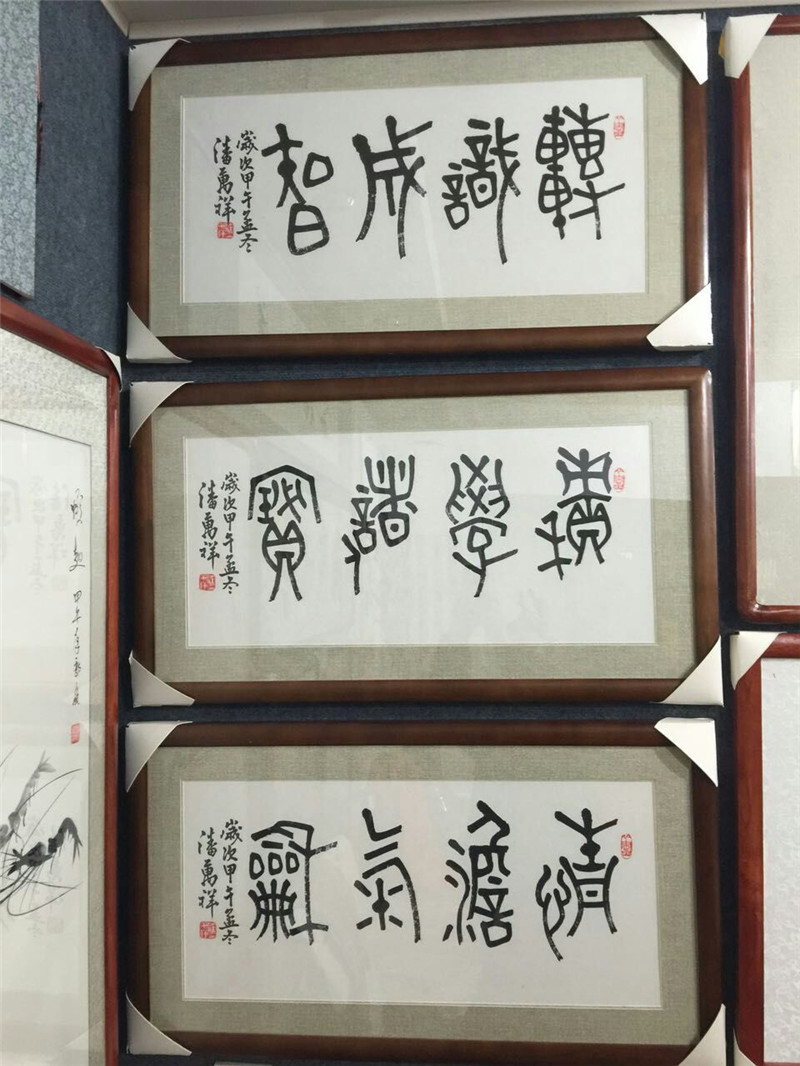 轉識成智
歲次甲午孟冬
潘萬祥
積學儲寶
歲次甲午孟冬
潘萬祥
情澹氣龢
歲次甲午孟冬
潘萬祥
甲午年